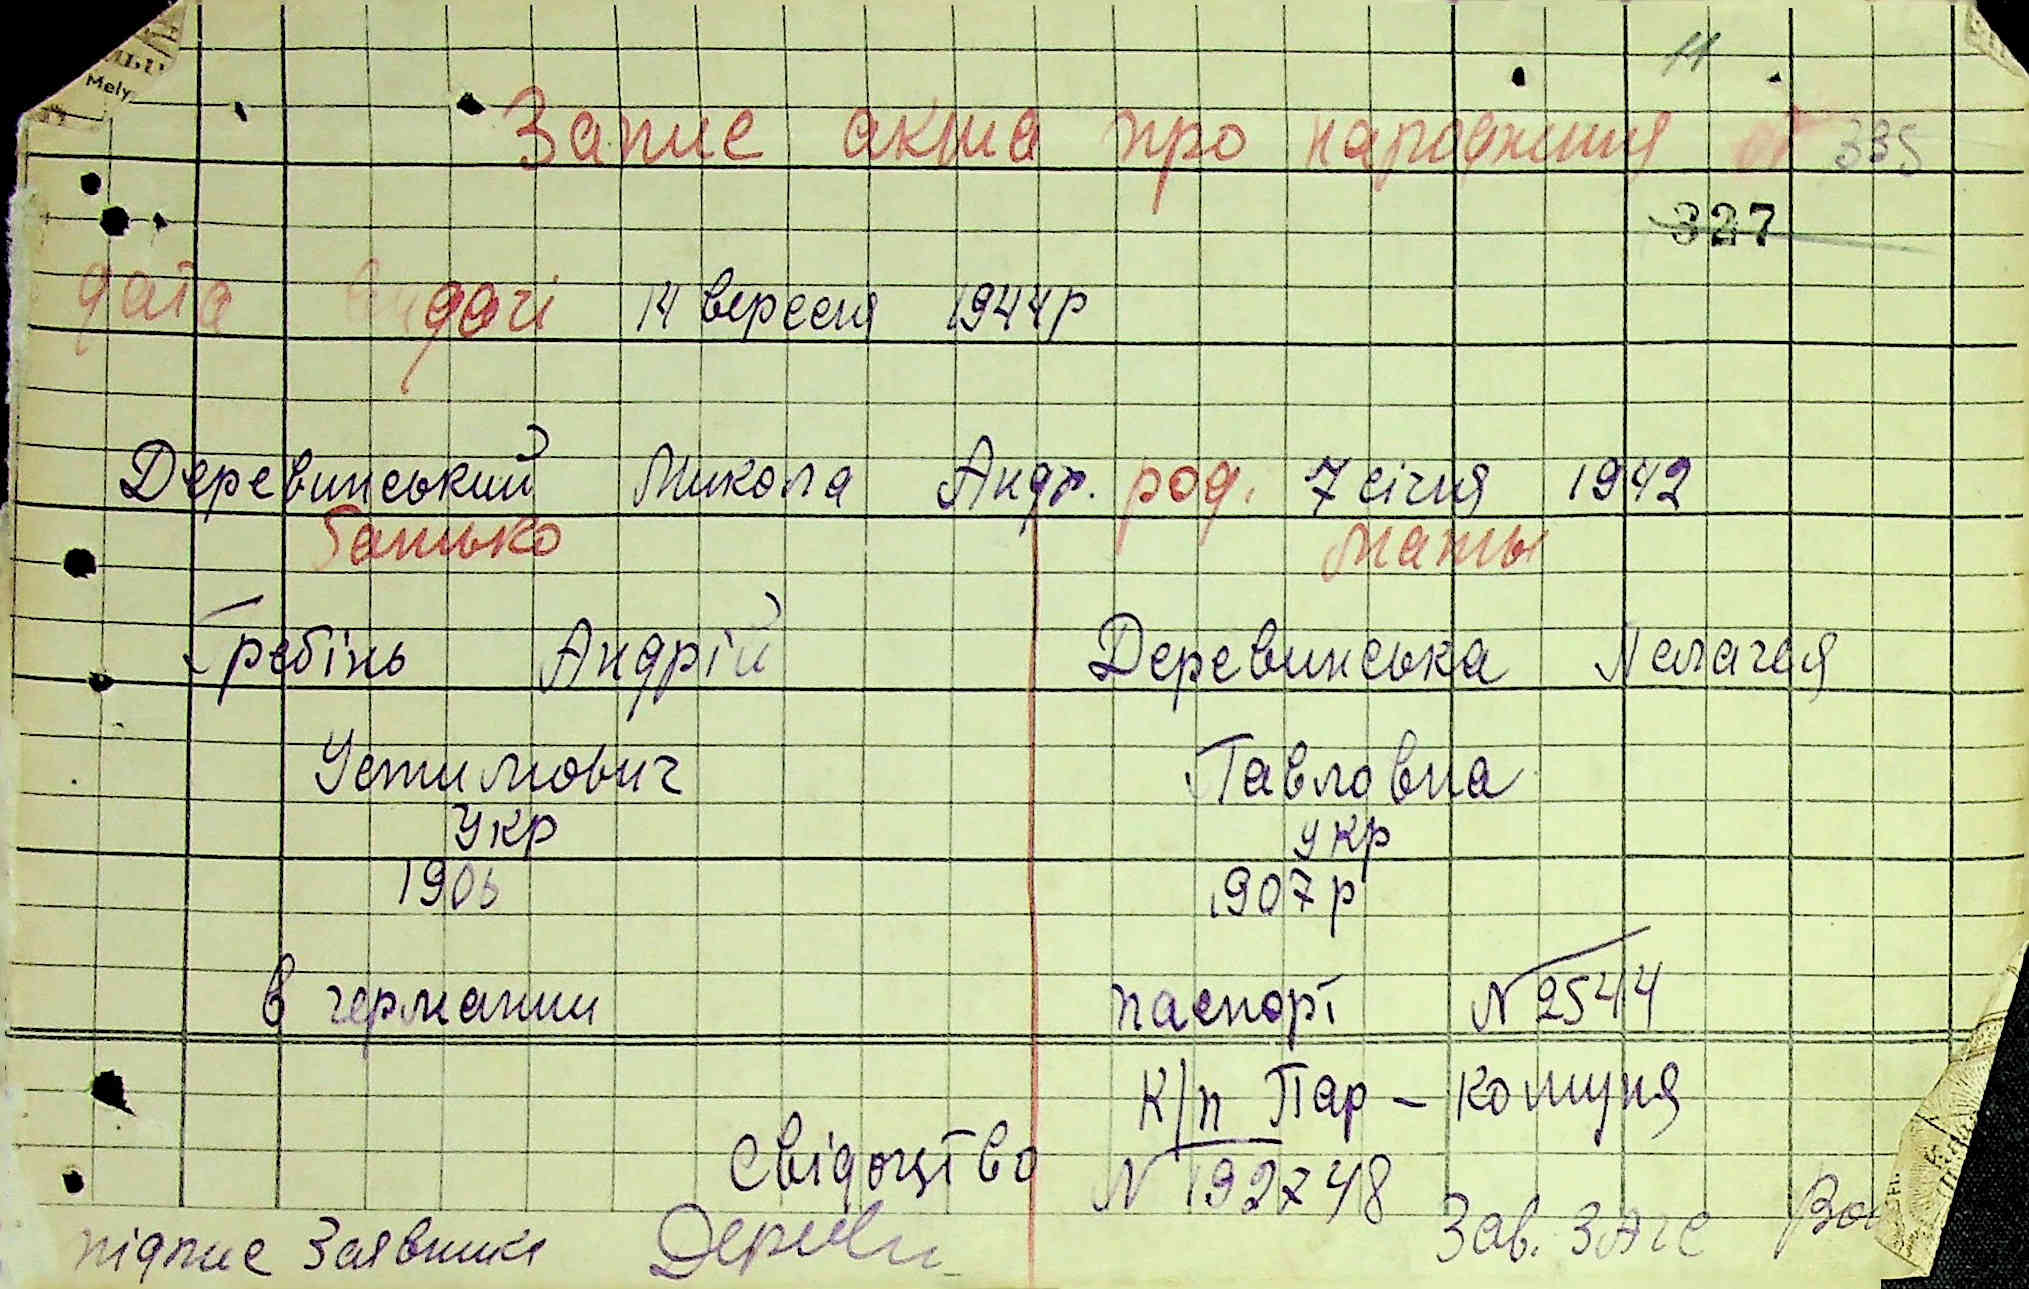 Mely
11
Запис акта про народження 335
327
дата видачі 14 вересня 1944р
Деревинський Микола Андр. род. 7 січня 1942
батько маты
Гребінь Андрій Деревинська Пелагея
Устимович Павловна
укр укр
1906 1907р
в германии паспорт N 2544
к/п Пар-комуня
Свідоцтво N 192748
підпис Заявника Дереви Зав. Загс